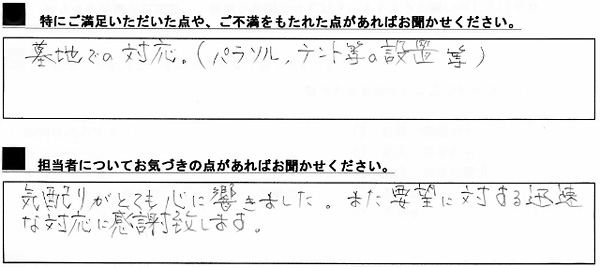 ■ 特にご満足いただいた点や、ご不満をもたれた点があればお聞かせください。
墓地での対応。(パラソル,テント等の設置 等)
■ 担当者についてお気づきの点があればお聞かせください。
気配りがとても心に響きました。また要望に対する迅速
な対応に感謝致します。